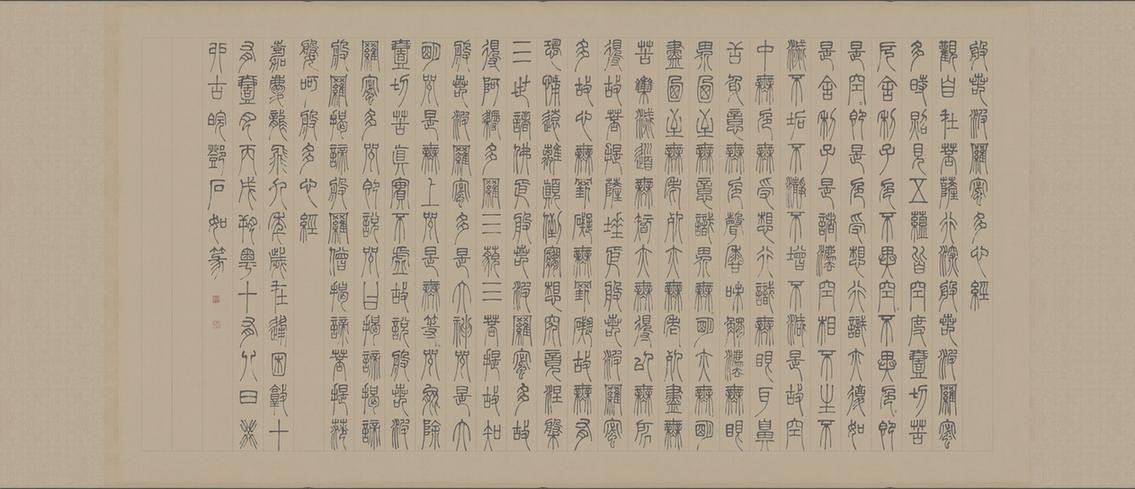 般若波羅蜜多心經
觀自在菩薩行深般若波羅蜜
多時照見五蘊皆空度壹切苦
厄舍利子色不異空不異色即
是空即是色受想行識亦復如
是舍利子是諸法空相不生不
滅不垢不淨不增不減是故空
中無色無受想行識無眼耳鼻
舌身意無色聲香味觸法無眼
界乃至無意識界無明亦無明
盡乃至無老死亦無老死盡無
苦集滅道無智亦無得以無所
得故菩提薩埵依般若波羅蜜
多故心無罣礙無罣礙故無有
恐怖遠離顛倒夢想究竟涅槃
三世諸佛依般若波羅蜜多故
得阿耨多羅三藐三菩提故知
般若波羅蜜多是大神咒是大
明咒是無上咒是無等咒能除
壹切苦真實不虛故說般若波
羅蜜多咒即說咒曰揭諦揭諦
般羅揭諦般羅僧揭諦菩提薩
婆呵 般多心經
嘉慶龍飛九年歲在逢困敦十
有壹月丙戌朔粵十有八日癸
卯古皖鄧石如篆